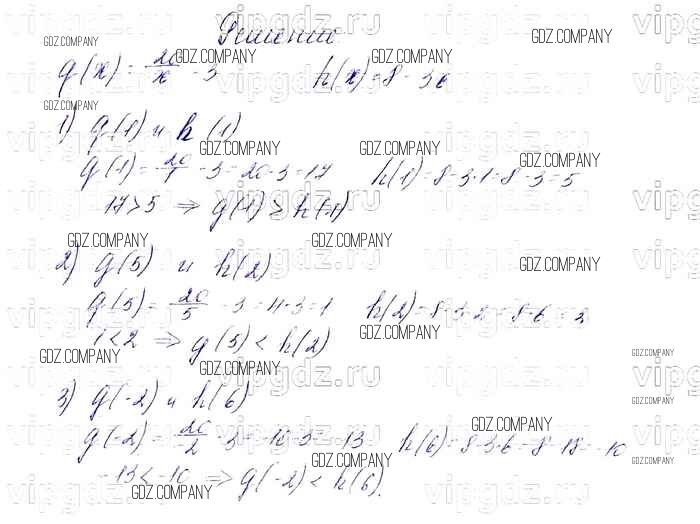 Решение
g(x) = 20/x - 3    h(x) = 8 - 3x
1) g(1) и h(1)
g(1) = 20/1 - 3 = 20 - 3 = 17    h(1) = 8 - 3·1 = 8 - 3 = 5
17 > 5 ⇒ g(1) > h(1)
2) g(5) и h(2)
g(5) = 20/5 - 3 = 4 - 3 = 1    h(2) = 8 - 3·2 = 8 - 6 = 2
1 < 2 ⇒ g(5) < h(2)
3) g(-2) и h(6)
g(-2) = 20/-2 - 3 = -10 - 3 = -13    h(6) = 8 - 3·6 = 8 - 18 = -10
-13 < -10 ⇒ g(-2) < h(6).
GDZ.COMPANY
vipgdz.ru